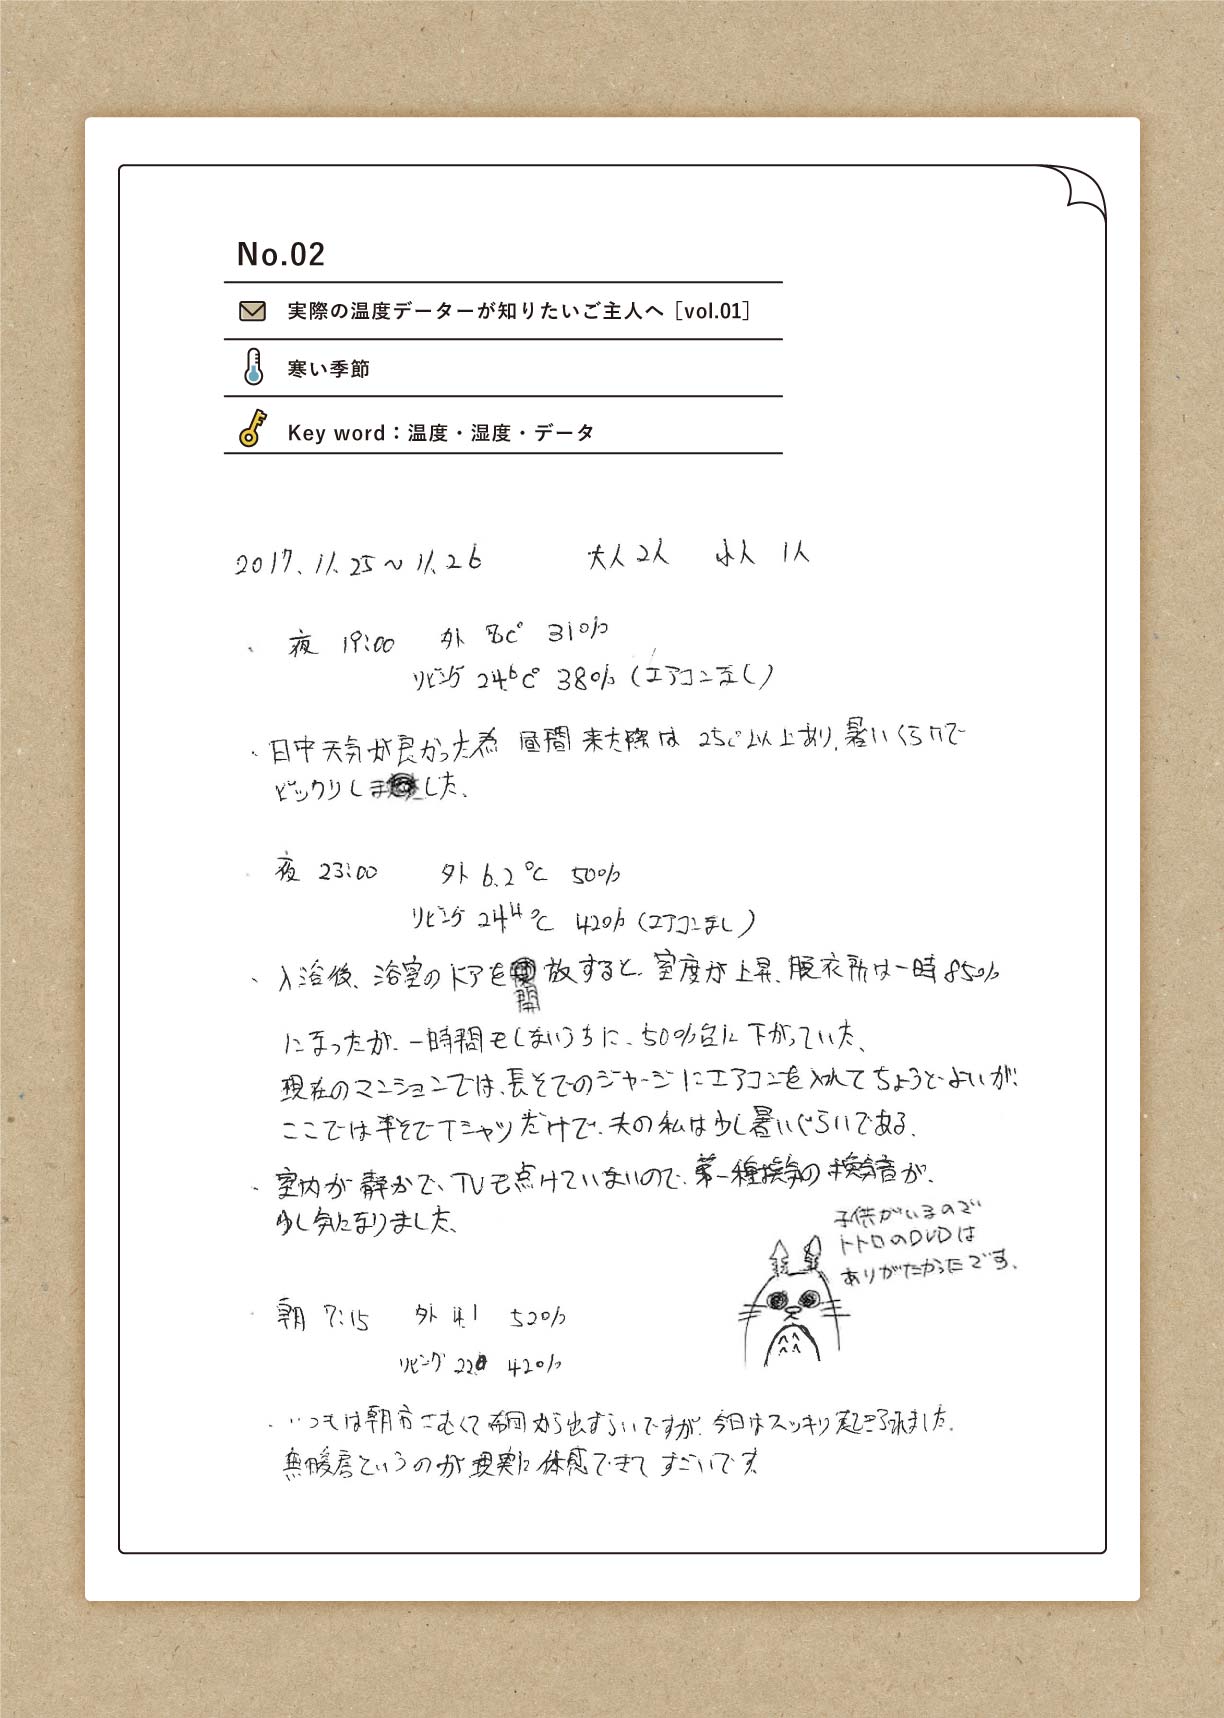 No.02
実際の温度データーが知りたいご主人へ［vol.01］
寒い季節
Key word：温度・湿度・データ
2017.11.25～11.26 大人2人 小人 1人
・ 夜 19:00 外 8C° 31%
リビング 24.6C° 38%（エアコンなし）
・日中天気が良かった為 昼間来た際は 25C°以上あり、暑いくらいで
ビックリしました。
・ 夜 23:00 外 6.2℃ 50%
リビング 24.4℃ 42%（エアコンなし）
・入浴後、浴室のドアを開放すると、室度が上昇、脱衣所は一時85%
になったが、一時間もしないうちに、50%台に下がっていた。
現在のマンションでは、長そでのジャージにエアコンを入れてちょうどよいが、
ここでは半そでTシャツだけで、夫の私は少し暑いぐらいである。
・室内が静かで、TVも点けていないので、第一種換気の換気音が、
少し気になりました。
子供がいるので
トトロのDVDは
ありがたかったです。
・ 朝 7:15 外 4.1 52%
リビング 42%
・いつもは朝方さむくて布団から出づらいですが、今日はスッキリ起きられました。
無暖房というのが現実に体感できてすごいです。